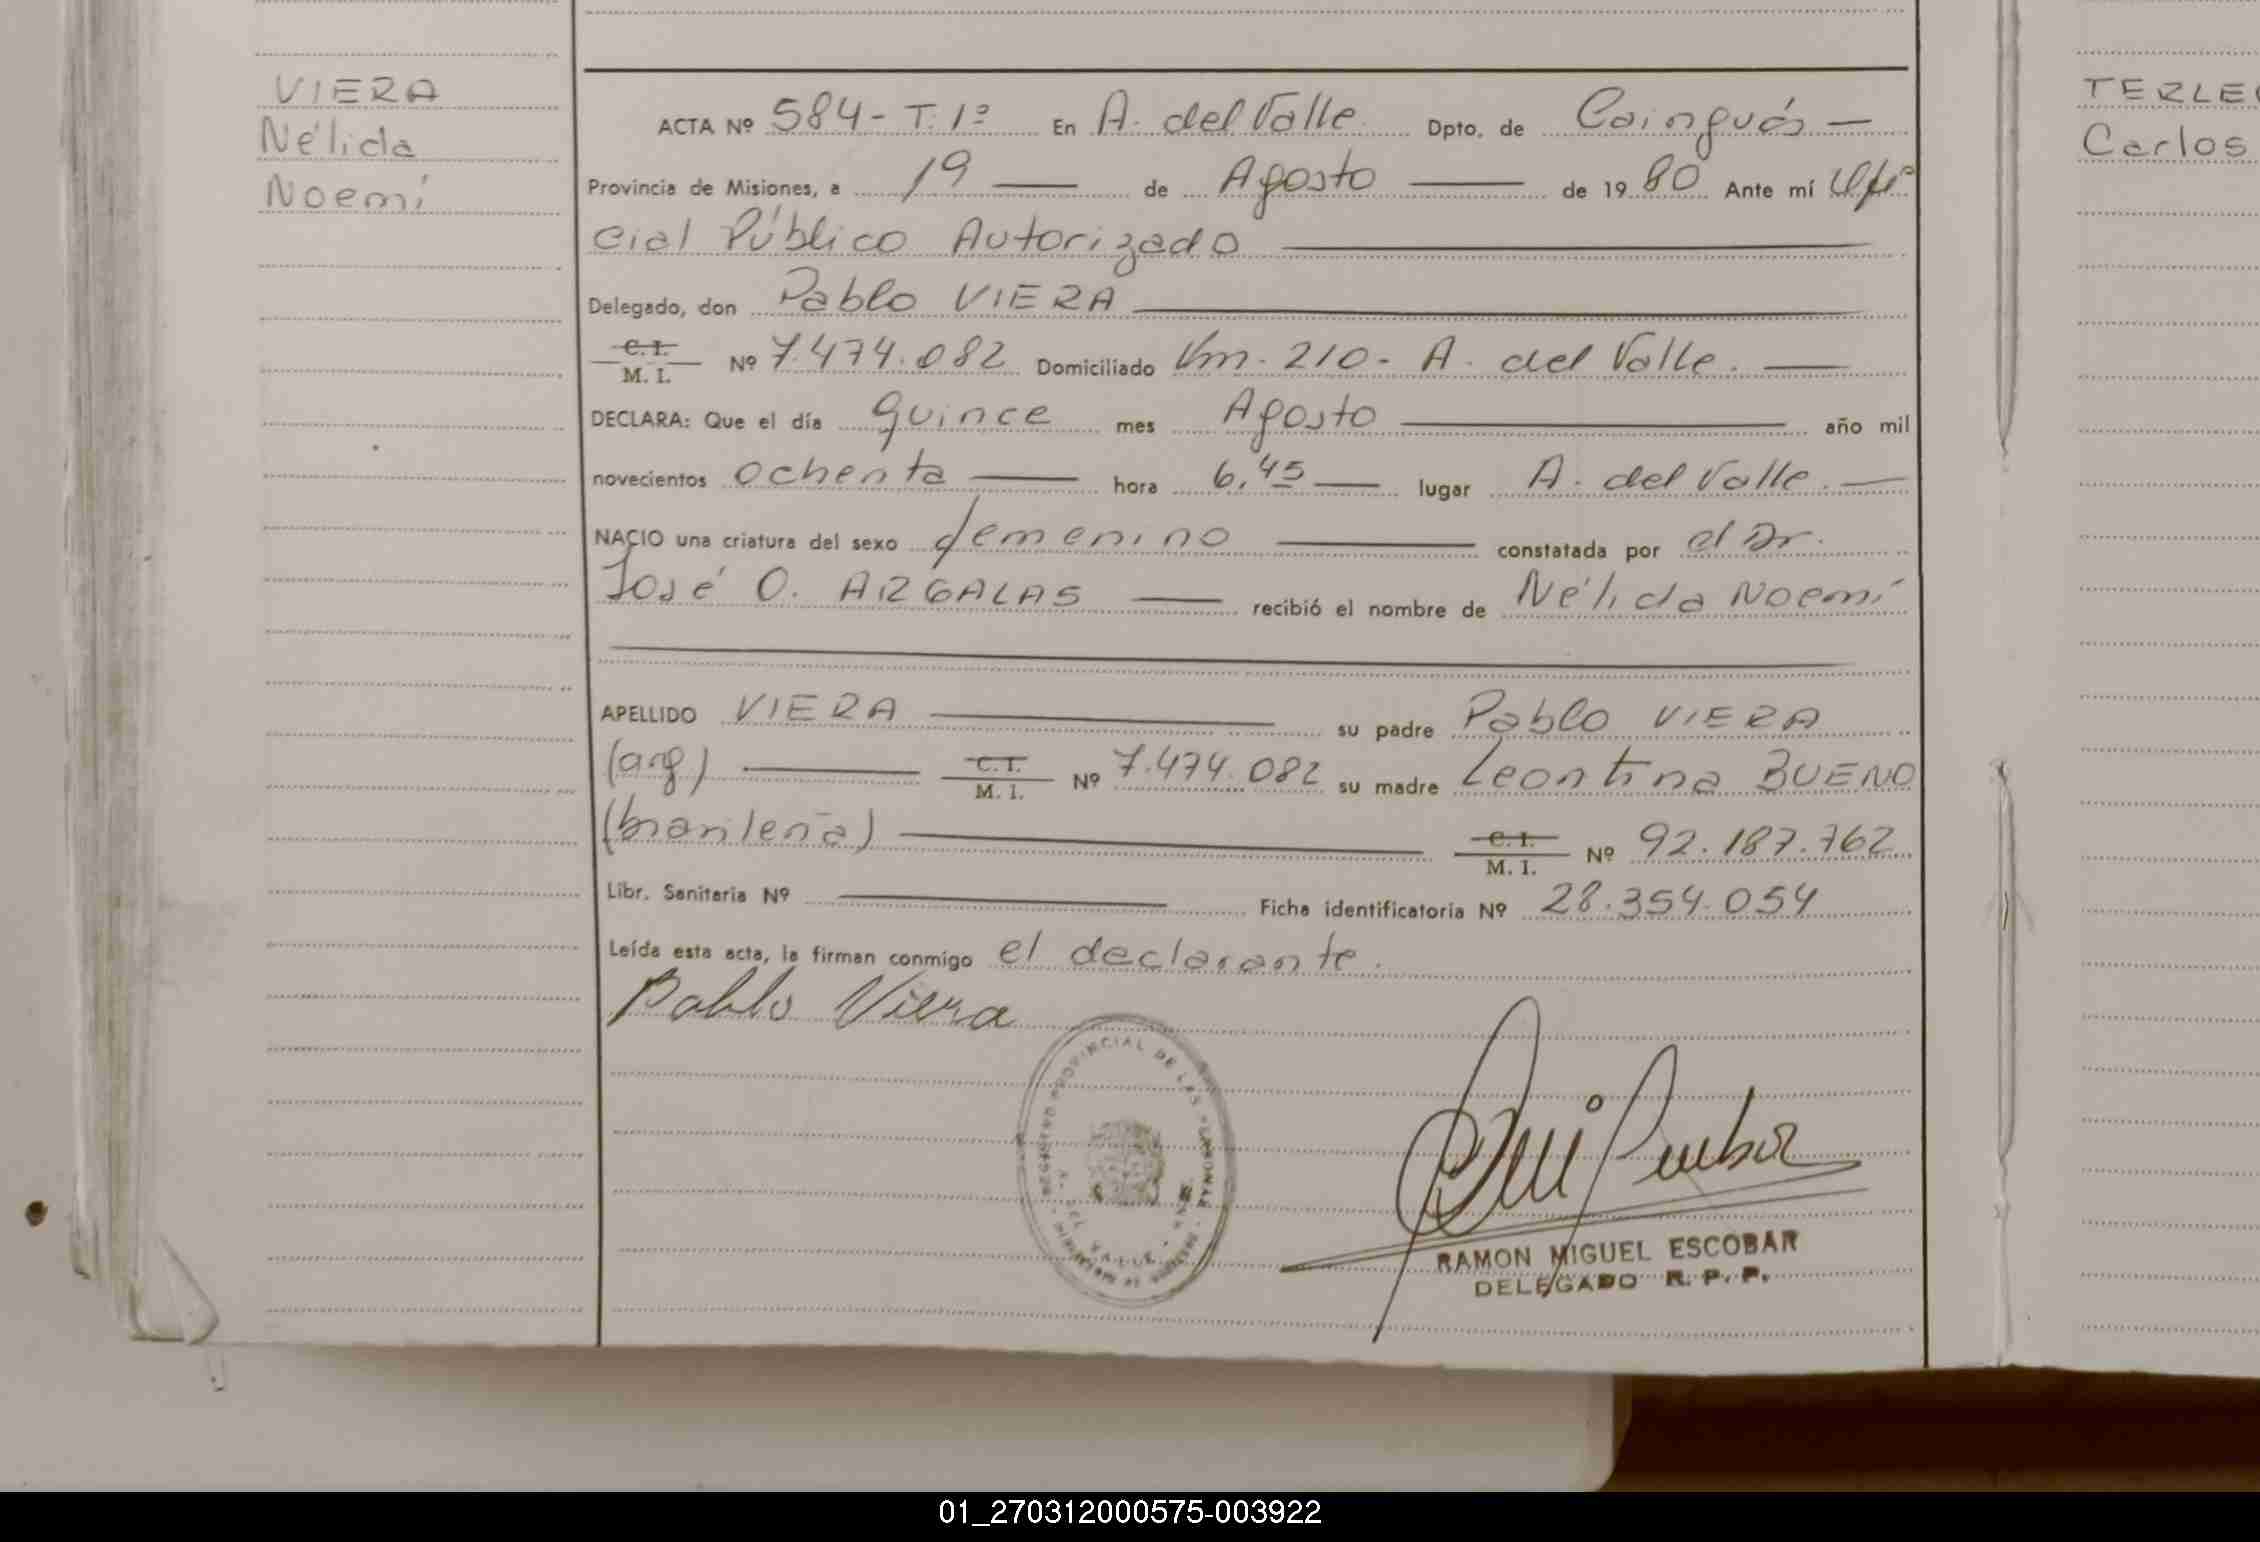 VIERA
Nélida
Noemí
ACTA Nº 584- T. 1º En A. del Valle Dpto. de Cainguás —
Provincia de Misiones, a 19 — de Agosto — de 1980 Ante mí Ofi
cial Público Autorizado —
Delegado, don Pablo VIERA —
C. I.
M. I. Nº 7.474.082 Domiciliado Km. 210- A. del Valle. —
DECLARA: Que el día quince mes Agosto — año mil
novecientos ochenta — hora 6,45 — lugar A. del Valle. —
NACIO una criatura del sexo femenino — constatada por el Dr.
José O. ARGALAS — recibió el nombre de Nélida Noemí
APELLIDO VIERA — su padre Pablo VIERA
(arg) — C. I. M. I. Nº 7.474.082 su madre Leontina BUENO
(brasileña) — C. I. M. I. Nº 92.187.762
Libr. Sanitaria Nº — Ficha identificatoria Nº 28.354.054
Leída esta acta, la firman conmigo el declarante.
Pablo Viera
PROVINCIAL DE LAS PERSONAS
A. DEL VALLE
RAMON MIGUEL ESCOBAR
DELEGADO R. P. P.
TERLE
Carlos
01_270312000575-003922